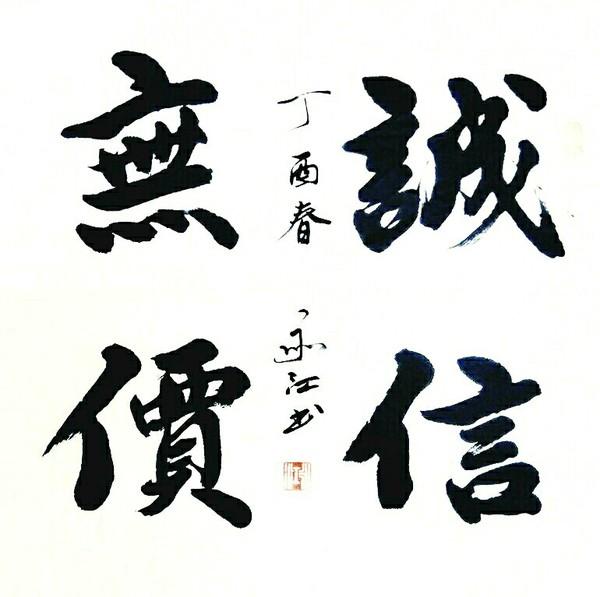 誠信
無價
丁酉春
江书